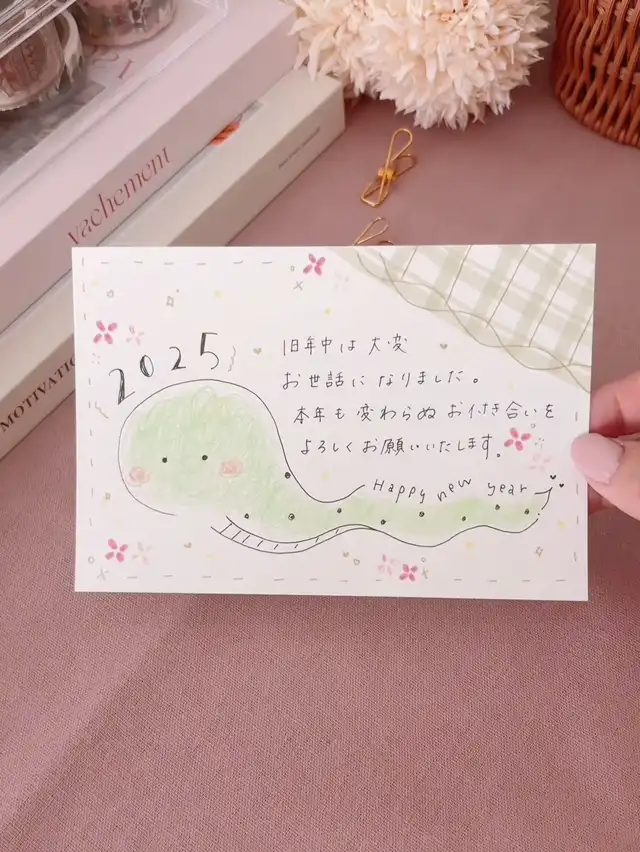 vachement
MOTIVATIO
2025
旧年中は大変
お世話になりました。
本年も変わらぬお付き合いを
よろしくお願いいたします。
Happy new year